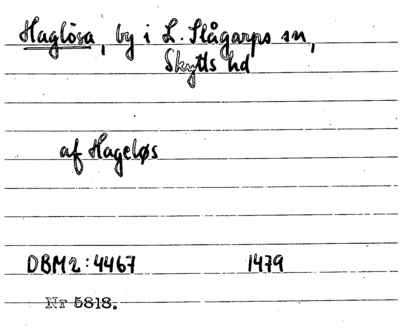 Haglösa, by i L. Slågarps sn,
Skytts hd
af Hageløs
DBM 2:4467 1479
Nr 5818.